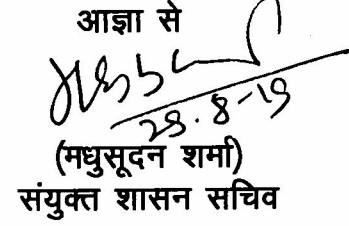 आज्ञा से
28.8-19
(मधुसूदन शर्मा)
संयुक्त शासन सचिव